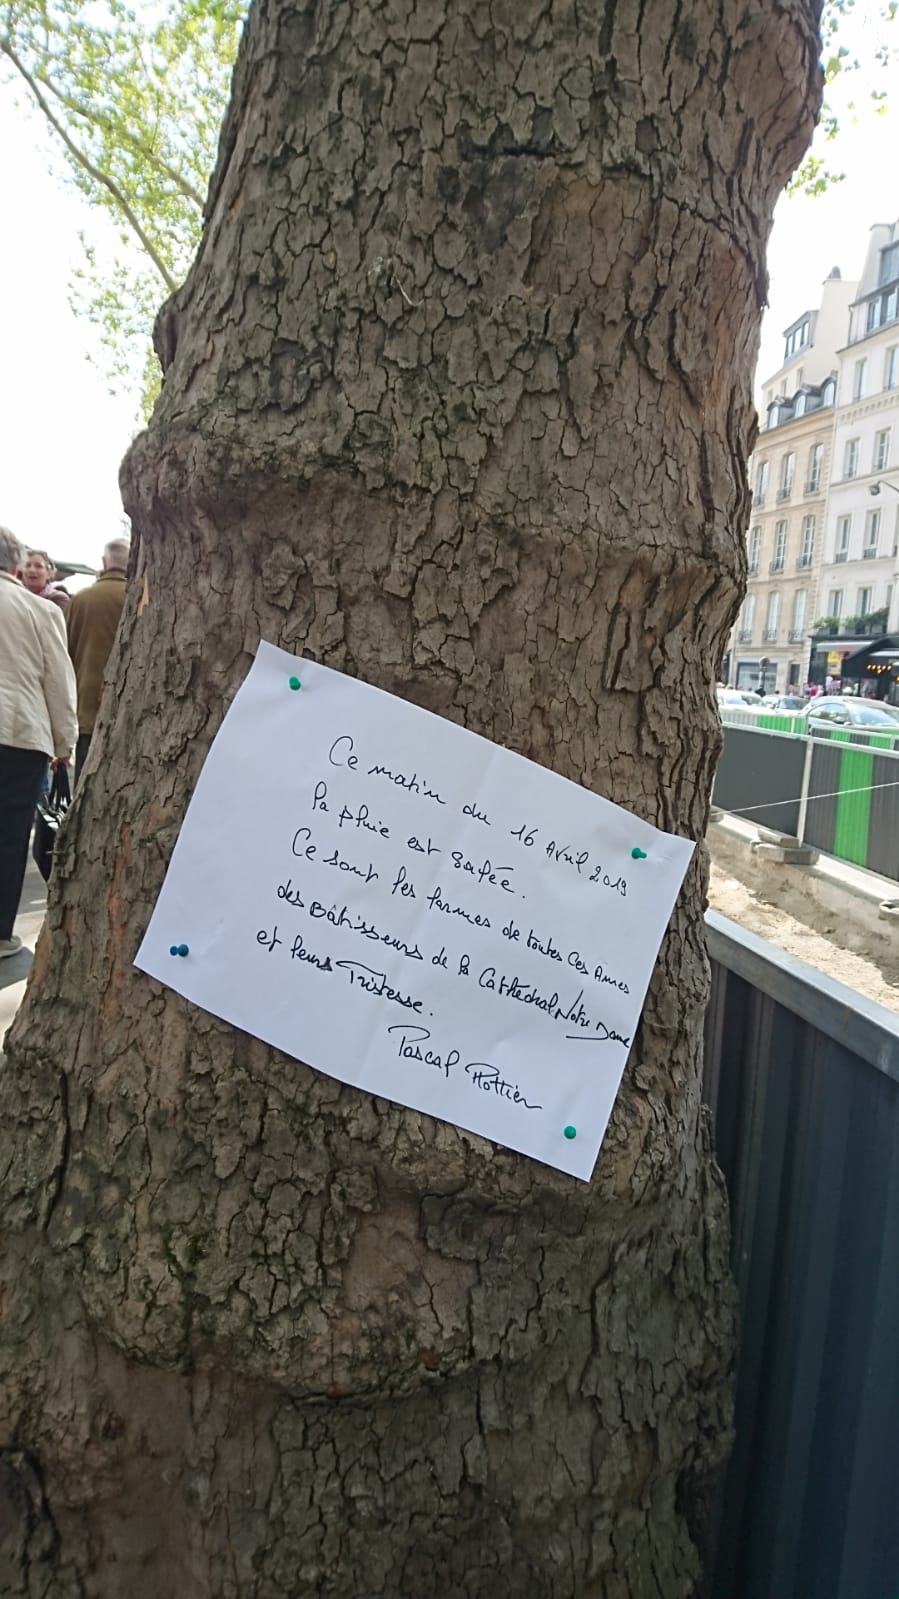 Ce matin du 16 Avril 2019
la pluie est salée.
Ce sont les larmes de toutes ces Âmes
des Bâtisseurs de la Cathédral Notre Dame
et leurs Tristesse.
Pascal Hottier